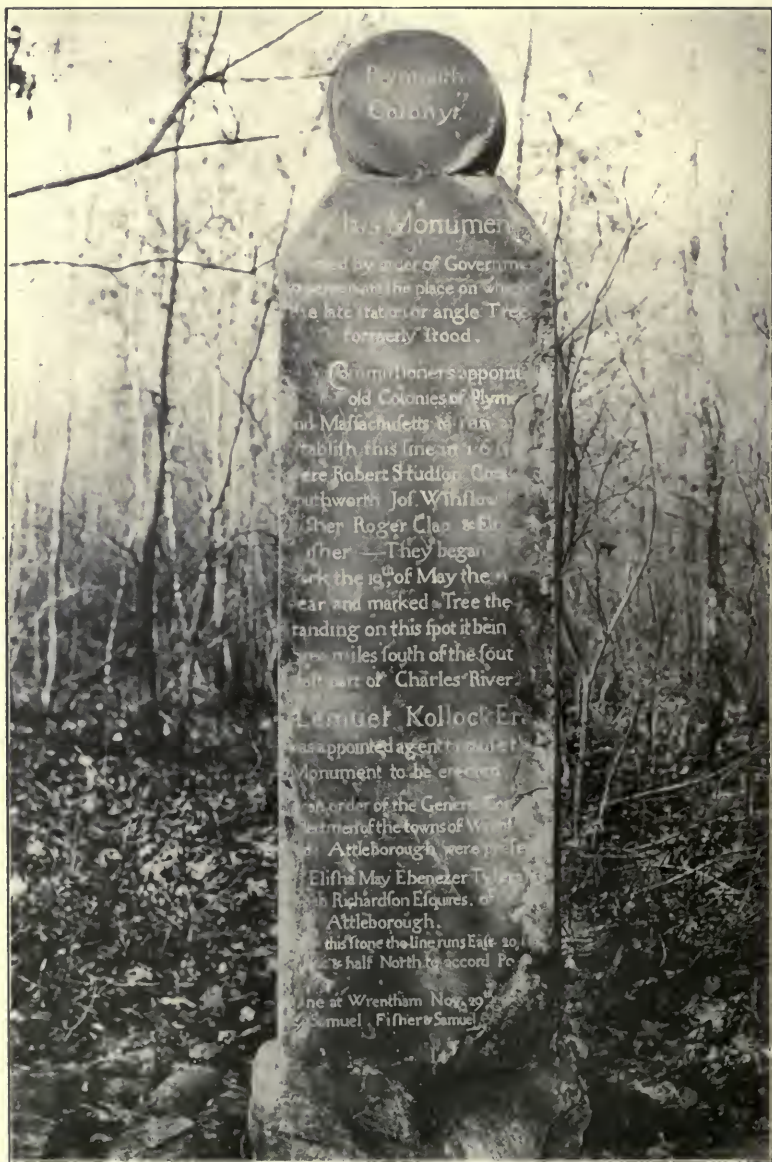 Plymouth
Colony.
his Monumen
by order of Governme
the place on whi
the late station or angle Tree
formerly ſtood.
Commiſſioners appoint
old Colonies of Plym
nd Maſſachuſetts to run
tabliſh this line in 16
ere Robert Studſon
uthworth Joſ. Winſlow
iſher Roger Clap &
iſher — They began
ork the 19th of May the
ear and marked a Tree the
tanding on this ſpot it bein
ree miles ſouth of the ſout
part of Charles River
Lemuel Kollock Eſ
was appointed agent to
Monument to be erected
order of the General
lectmen of the towns of
Attleborough were preſe
Eliſha May Ebenezer Tyler
Richardſon Eſquires. of
Attleborough.
this ſtone the line runs Eaſt 20,
& half North to accord
ne at Wrentham Nov. 29th
Samuel Fiſher & Samuel